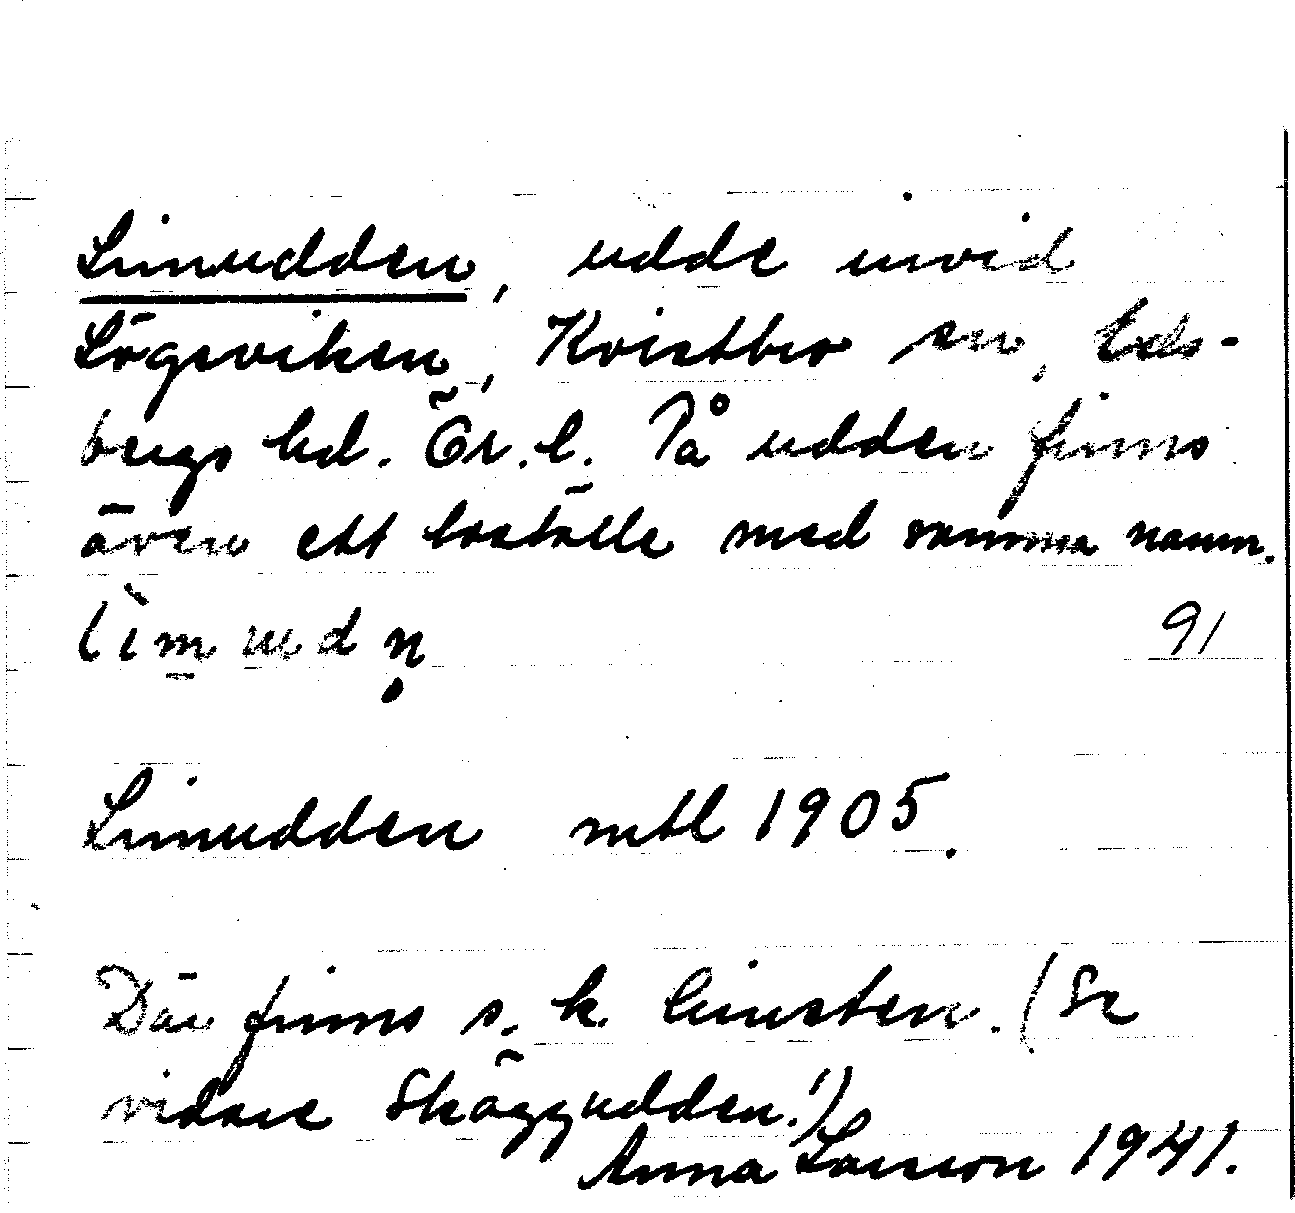 Limudden, udde invid
Lögeviken, Kvistbro sn, Eds-
bergs hd. Ör. l. På udden finns
även ett boställe med samma namn.
91
Limudden mtl 1905.
Där finns s. k. limsten. (Se
vidare Skäggudden!)
Anna Larsson 1941.